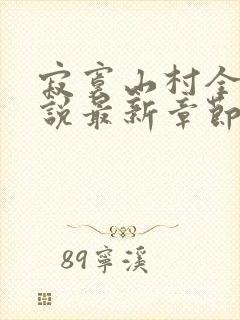 寂寞山村全
說最新章節
89寧溪